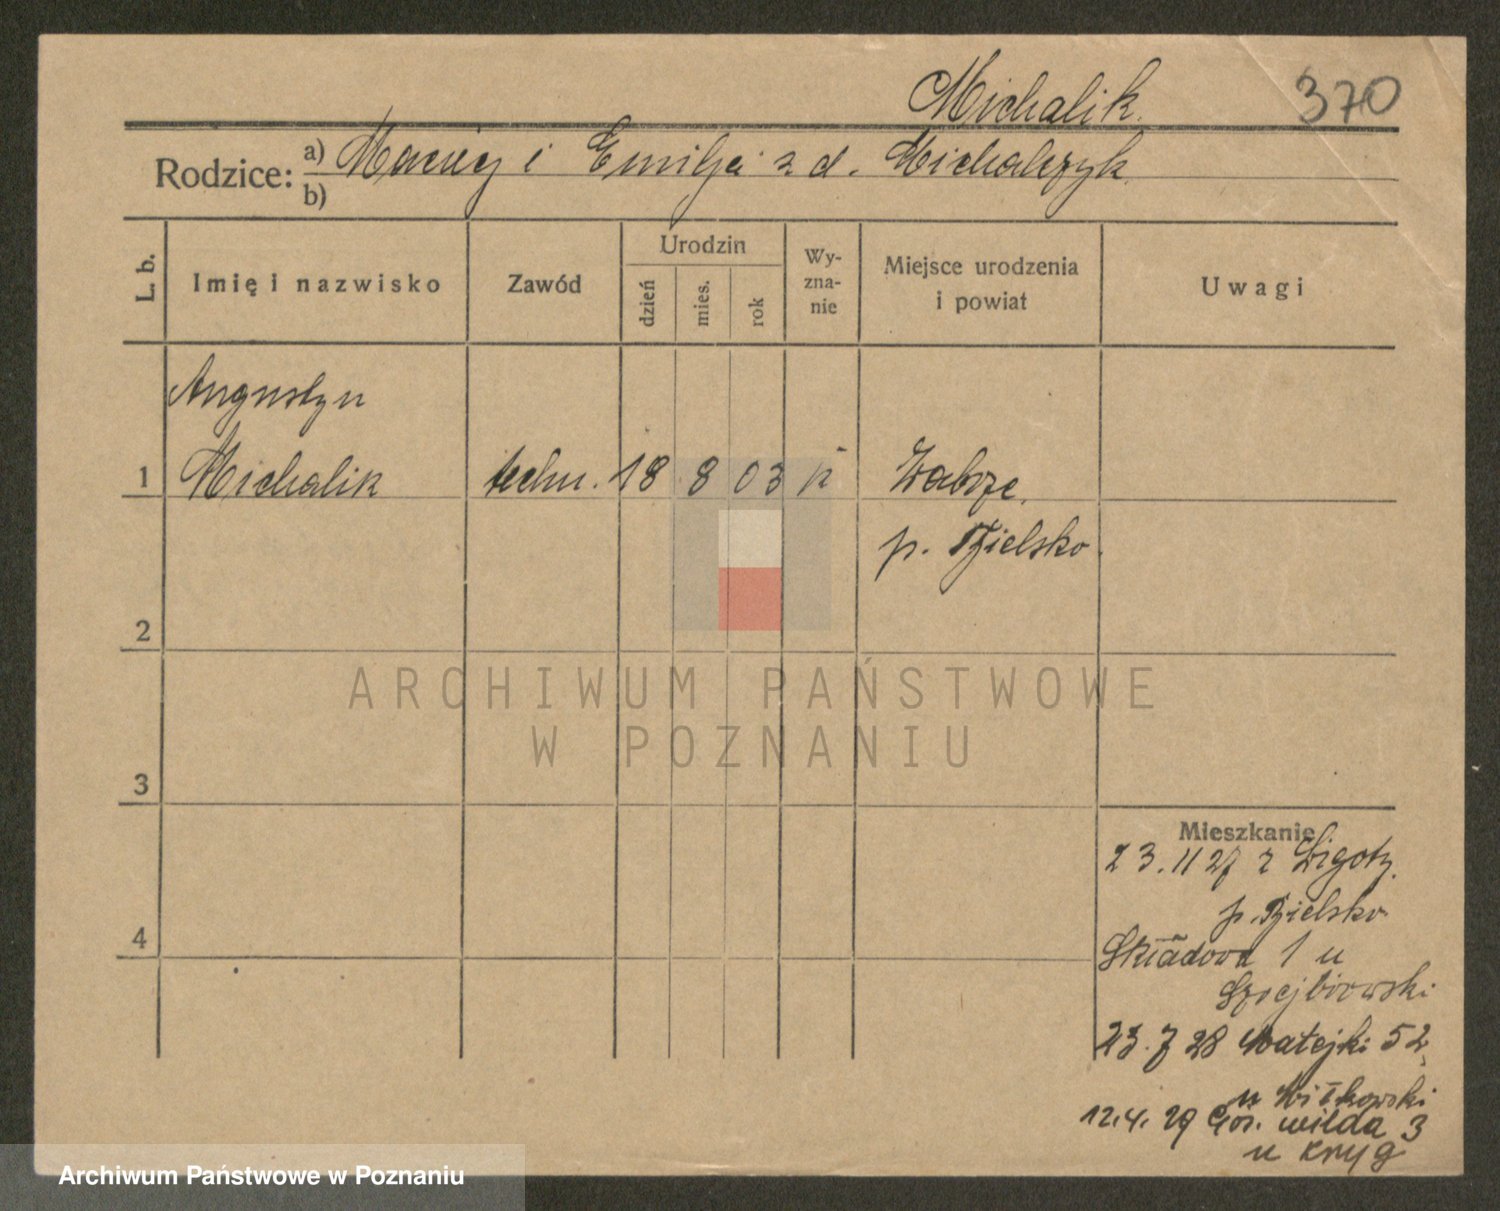 Michalik.
370
Rodzice: a) Maciej i Emilja z d. Michalczyk
b)
L. b.
Imię i nazwisko
Zawód
Urodzin
dzień
mies.
rok
Wy-
zna-
nie
Miejsce urodzenia
i powiat
Uwagi
Augustyn
1 Michalik techn. 18 8 03 k Zabrze.
p. Bielsko.
2
3
4
Mieszkanie
23. 11 27 z Ligoty.
p. Bielsko
Składowa 1 u
23. 7 28 Matejki 52
u Witkowski
12.4. 29 Gór. wilda 3
u Kryg
ARCHIWUM PAŃSTWOWE
W POZNANIU
Archiwum Państwowe w Poznaniu